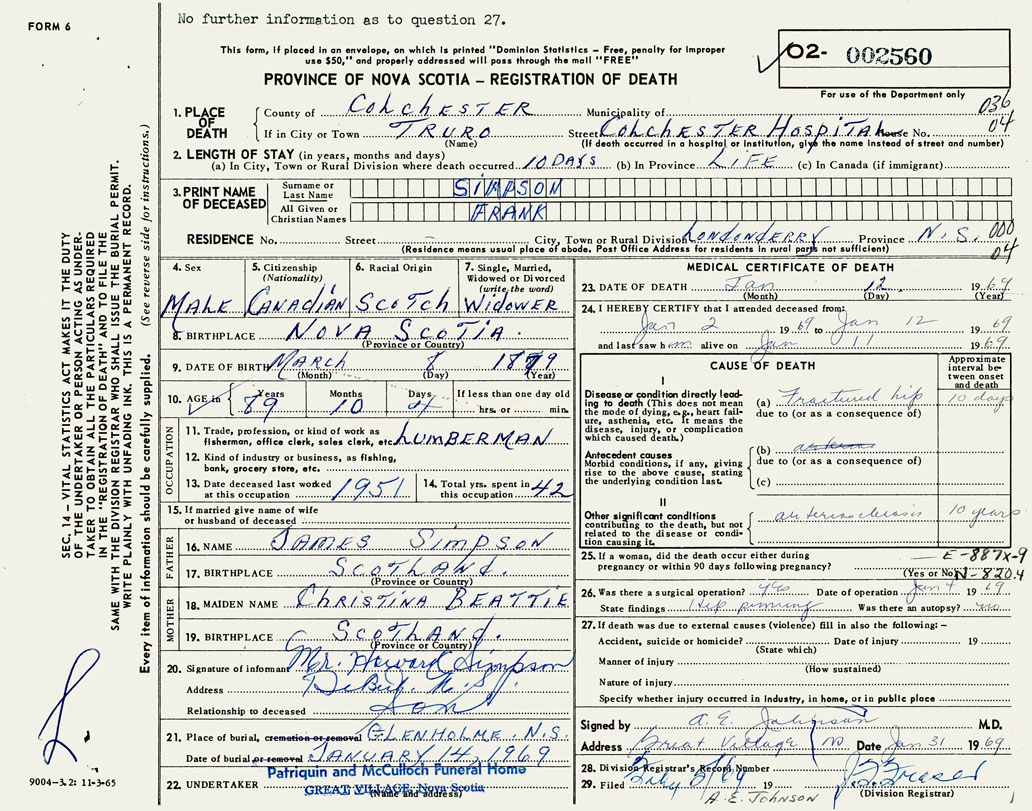 No further information as to question 27.
FORM 6
This form, if placed in an envelope, on which is printed "Dominion Statistics – Free, penalty for improper
use $50," and properly addressed will pass through the mail "FREE"
PROVINCE OF NOVA SCOTIA – REGISTRATION OF DEATH
02- 002560
For use of the Department only
036
04
1. PLACE OF DEATH
County of COLCHESTER Municipality of
If in City or Town TRURO Street COLCHESTER HOSPITAL House No.
(Name) (If death occurred in a hospital or Institution, give the name instead of street and number)
2. LENGTH OF STAY (in years, months and days)
(a) In City, Town or Rural Division where death occurred 10 DAYS (b) In Province LIFE (c) In Canada (if immigrant)
3. PRINT NAME OF DECEASED
Surname or Last Name SIMPSON
All Given or Christian Names FRANK
RESIDENCE No. Street – City, Town or Rural Division LONDONDERRY Province N.S. 000
(Residence means usual place of abode. Post Office Address for residents in rural parts not sufficient) 04
4. Sex MALE
5. Citizenship (Nationality) CANADIAN
6. Racial Origin SCOTCH
7. Single, Married, Widowed or Divorced (write the word) WIDOWER
8. BIRTHPLACE NOVA SCOTIA.
(Province or Country)
9. DATE OF BIRTH MARCH 8 1879
(Month) (Day) (Year)
10. AGE in Years Months Days If less than one day old
89 10 4 hrs. or min.
OCCUPATION
11. Trade, profession, or kind of work as
fisherman, office clerk, sales clerk, etc. LUMBERMAN
12. Kind of industry or business, as fishing,
bank, grocery store, etc.
13. Date deceased last worked at this occupation 1951
14. Total yrs. spent in this occupation 42
15. If married give name of wife
or husband of deceased
FATHER
16. NAME JAMES SIMPSON
17. BIRTHPLACE SCOTLAND.
(Province or Country)
MOTHER
18. MAIDEN NAME CHRISTINA BEATTIE
19. BIRTHPLACE SCOTLAND.
(Province or Country)
20. Signature of informant Mr. Howard Simpson
Address DeBert N.S.
Relationship to deceased Son
21. Place of burial, cremation or removal GLENHOLME. N.S.
Date of burial or removal JANUARY 14, 1969
22. UNDERTAKER Patriquin and McCulloch Funeral Home
GREAT VILLAGE, Nova Scotia
(Name and address)
MEDICAL CERTIFICATE OF DEATH
23. DATE OF DEATH Jan 12 1969
(Month) (Day) (Year)
24. I HEREBY CERTIFY that I attended deceased from:
Jan 2 1969 to Jan 12 1969
and last saw him alive on Jan 11 1969
CAUSE OF DEATH
Approximate interval between onset and death
I
Disease or condition directly leading to death (This does not mean the mode of dying, e.g., heart failure, asthenia, etc. It means the disease, injury, or complication which caused death.)
(a) Fractured hip 10 days
due to (or as a consequence of)
Antecedent causes
Morbid conditions, if any, giving rise to the above cause, stating the underlying condition last.
(b)
due to (or as a consequence of)
(c)
II
Other significant conditions
contributing to the death, but not related to the disease or condition causing it.
arteriosclerosis 10 years
25. If a woman, did the death occur either during
pregnancy or within 90 days following pregnancy? (Yes or No)
E-887X-9
N-820.4
26. Was there a surgical operation? yes Date of operation Jan 4 1969
State findings Hip pinning Was there an autopsy? no
27. If death was due to external causes (violence) fill in also the following: –
Accident, suicide or homicide? Date of injury 19
(State which)
Manner of injury
(How sustained)
Nature of injury
Specify whether injury occurred in industry, in home, or in public place
Signed by A. E. Johnson M.D.
Address Great Village NS Date Jan 31 1969
28. Division Registrar's Record Number
29. Filed 19
(Division Registrar)
A. E. JOHNSON
SEC. 14 – VITAL STATISTICS ACT MAKES IT THE DUTY
OF THE UNDERTAKER OR PERSON ACTING AS UNDER-
TAKER TO OBTAIN ALL THE PARTICULARS REQUIRED
IN THE "REGISTRATION OF DEATH" AND TO FILE THE
SAME WITH THE DIVISION REGISTRAR WHO SHALL ISSUE THE BURIAL PERMIT.
WRITE PLAINLY WITH UNFADING INK. THIS IS A PERMANENT RECORD.
Every item of information should be carefully supplied. (See reverse side for instructions.)
9004-3.2: 11-3-65